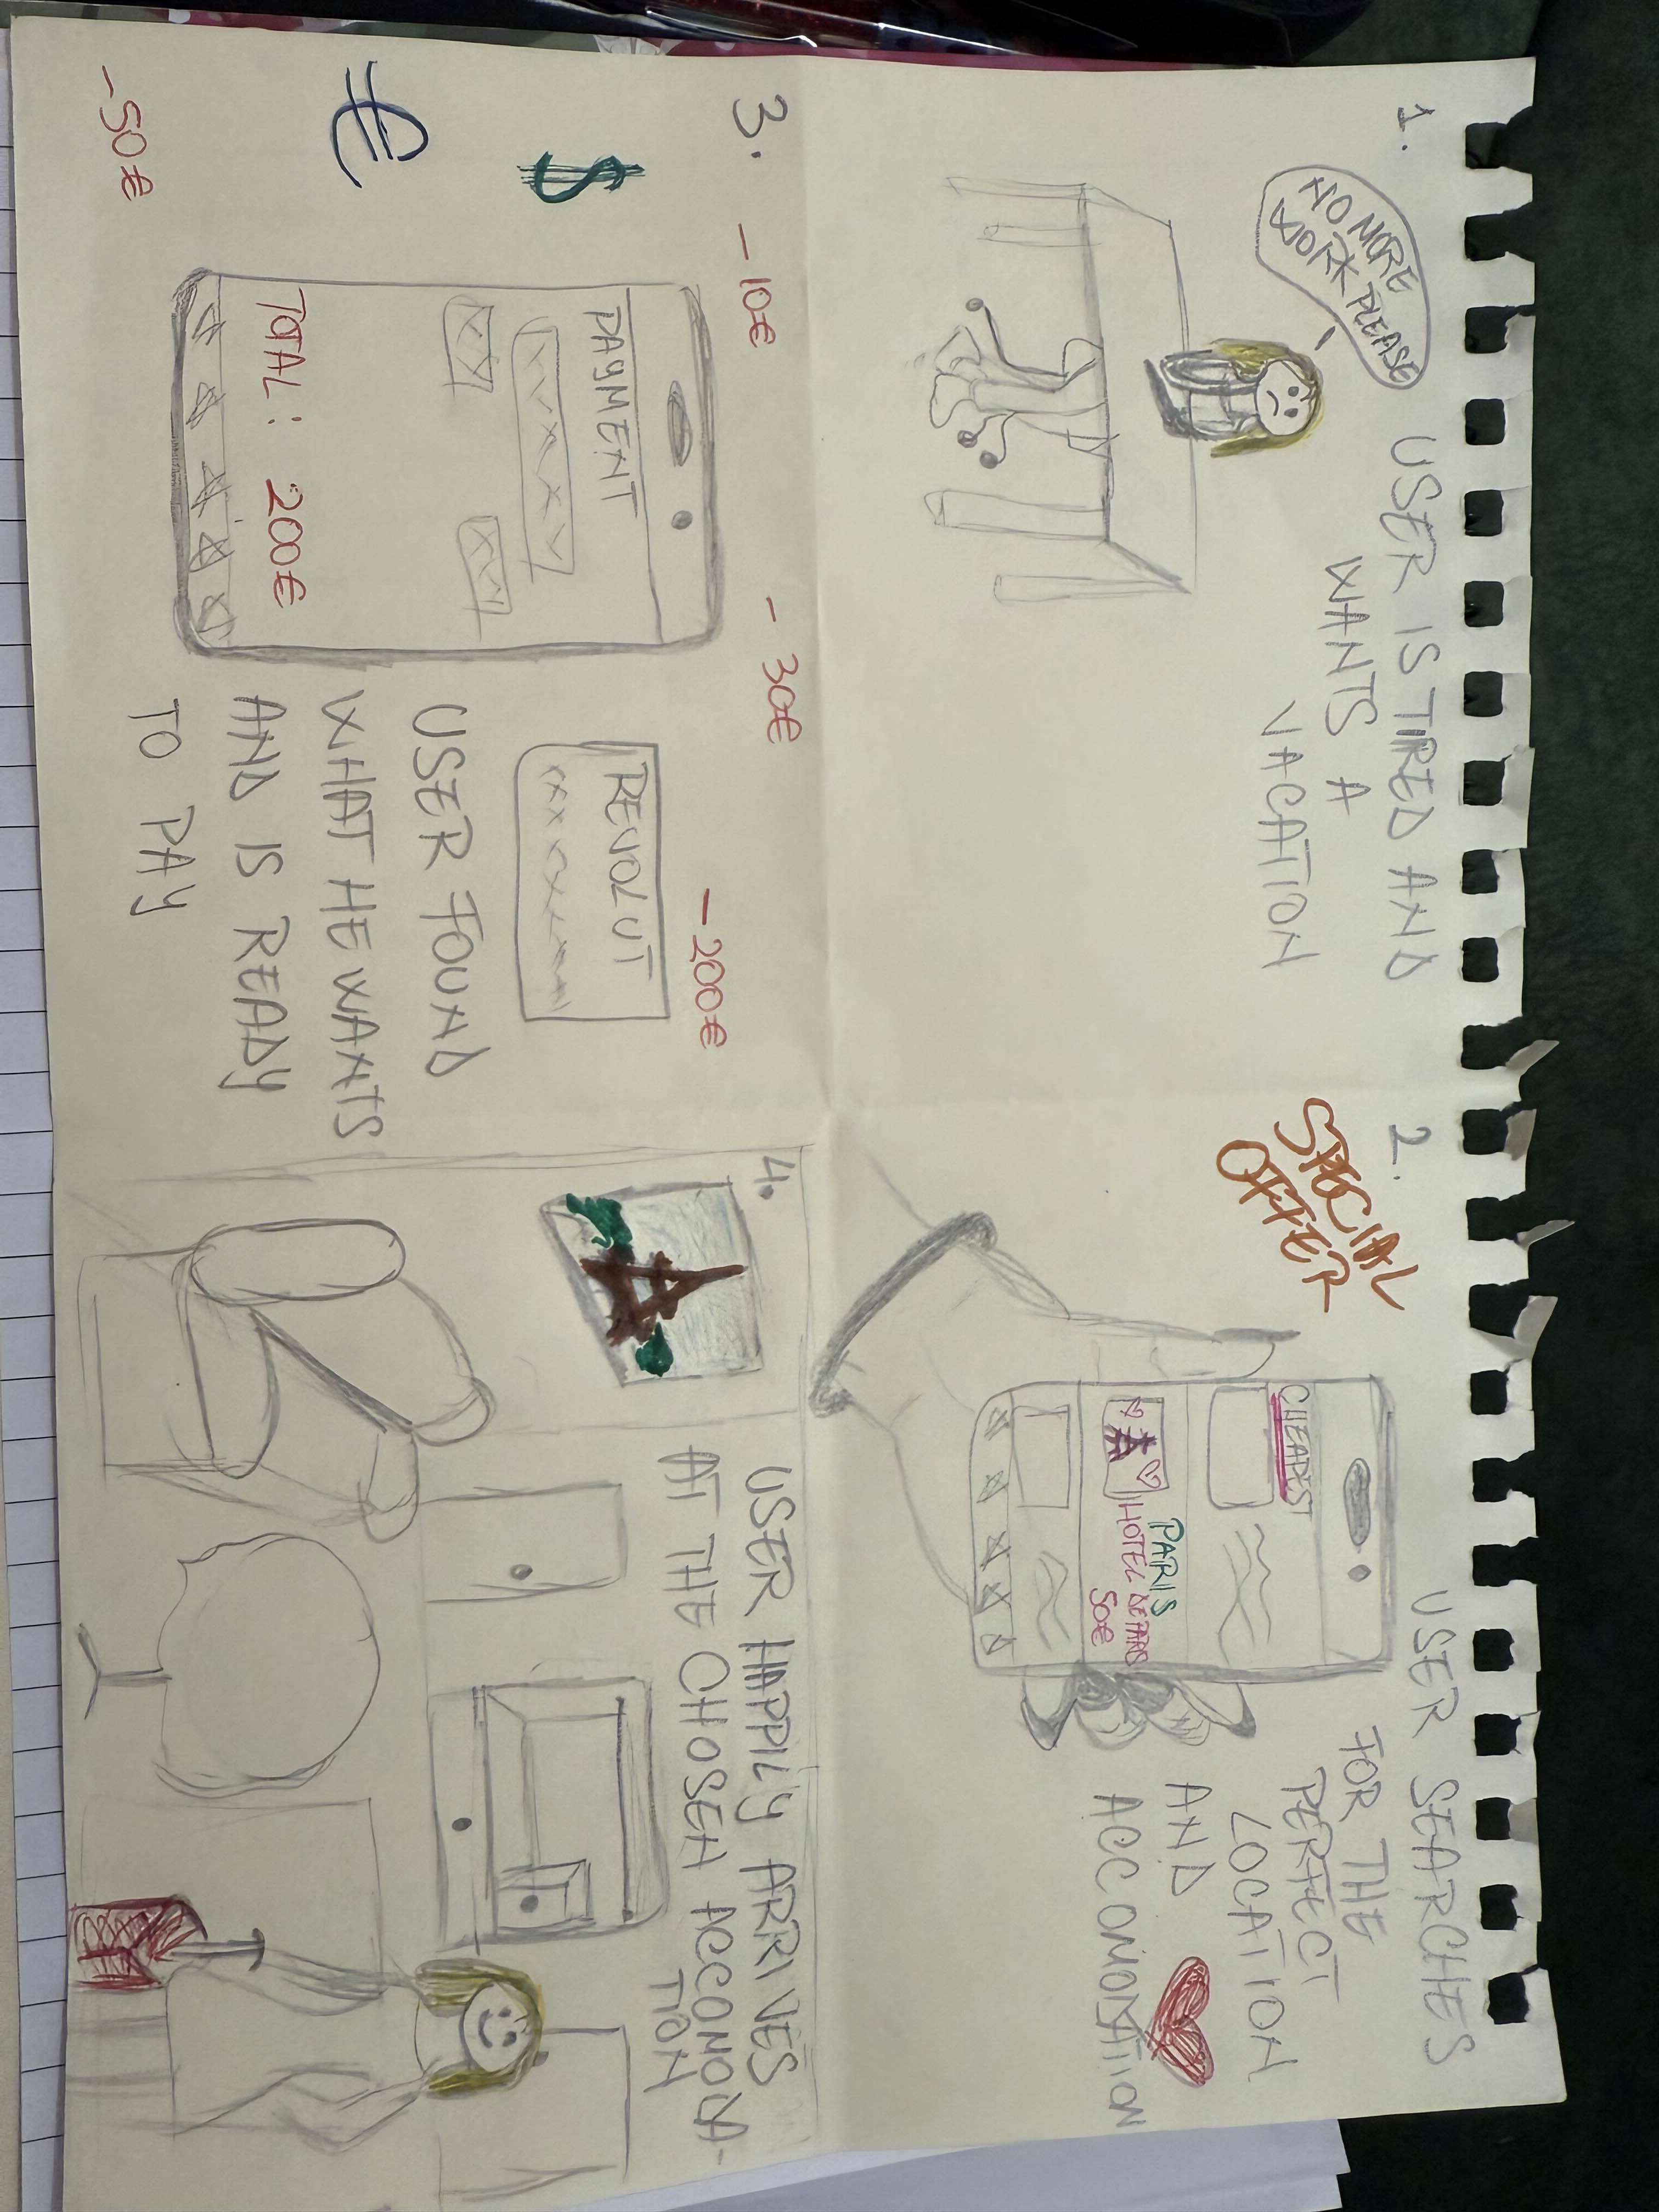 1.
NO MORE
WORK PLEASE
USER IS TIRED AND
WANTS A
VACATION
2.
SPECIAL
OFFER
CHEAPEST
PARIS
HOTEL DE PARIS
50€
USER SEARCHES
FOR THE
PERFECT
LOCATION
AND
ACCOMODATION
3.
$
€
-50€
-10€
-30€
-200€
PAYMENT
TOTAL: 200€
REVOLUT
USER FOUND
WHAT HE WANTS
AND IS READY
TO PAY
4.
USER HAPPILY ARRIVES
AT THE CHOSEN ACCOMODA-
TION